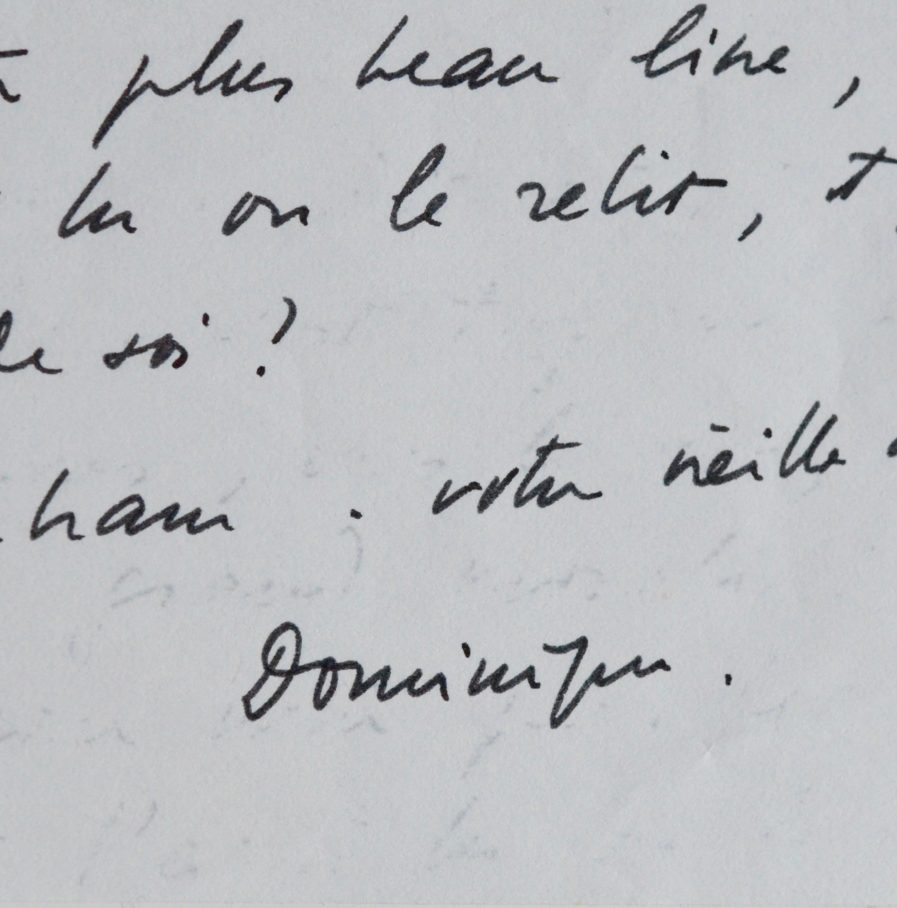 plus beau livre,
lu on le relit,
de soi ?
votre vieille
Dominique.